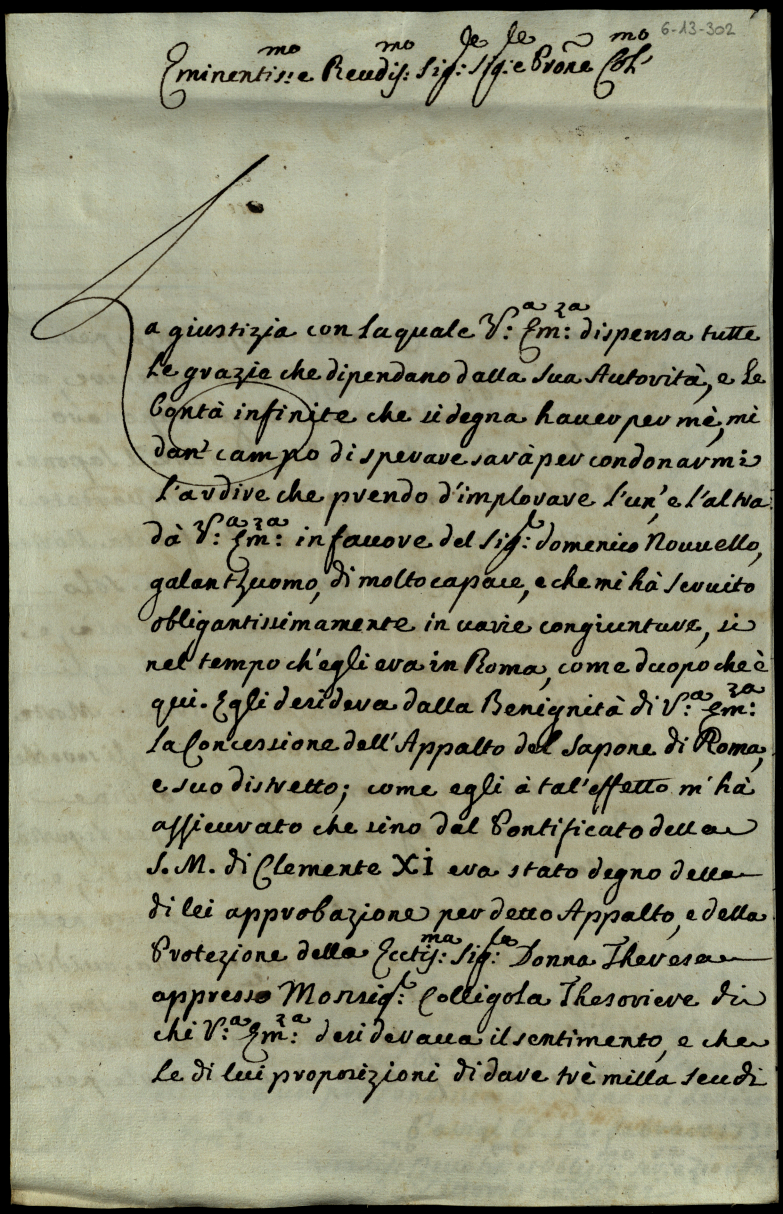 6-13-302
Eminentis:mo e Reudis:mo Sig:le Sig:le e Prõne Col:mo
La giustizia con la quale V:a Em:za dispensa tutte
le grazie che dipendano dalla sua Autorità, e le
bontà infinite che si degna hauer per mè, mi
dan' campo di sperare sarà per condonarmi
l'ardire che prendo d'implorare l'un', e l'altra
dà V:a Em:za in fauore del Sig:r Domenico Nouuello,
galant'uomo, di molto capace, e che mi hà seruito
obligantissimamente in uarie congiunture, si
nel tempo ch'egli era in Roma, come duopo che è
qui. Egli desidera dalla Benignità di V:a Em:za
la Concessione dell'Appalto del Sapone di Roma,
e suo distretto; come egli à tal'effetto m'hà
assicurato che sino dal Pontificato della
S. M. di Clemente XI era stato degno della
di lei approbazione per detto Appalto, e della
Protezione della Ecctis:ma Sig:ra Donna Theresa
appresso Monsig:r Colligola Thesoriere di
chi V:a Em:za desideraua il sentimento, e che
le di lui proposizioni di dare trè milla scudi